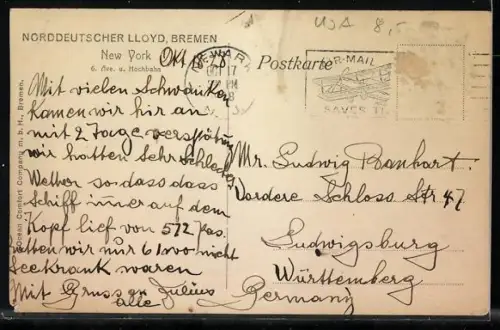 USA 8,-
NORDDEUTSCHER LLOYD, BREMEN
New York
6. Ave. u. Hochbahn
Okt 18 28
NEWARK
OCT 17
PM
Postkarte
AIR-MAIL
SAVES TIME
Mit vielen Schwanken
Kamen wir hir an
mit 2 Tage verspätung
wir hatten Sehr Schlechtes
Wetter so dass dass
Schiff immer auf dem
Kopf lief von 572 Pas.
hatten wir nur 61 wo nicht
Seekrank waren
Mit Gruss an Julius
alle
Mr. Ludwig Banhart.
Vordere Schloss Str. 47
Ludwigsburg
Württemberg
Germany
Ocean Comfort Company m. b. H., Bremen.